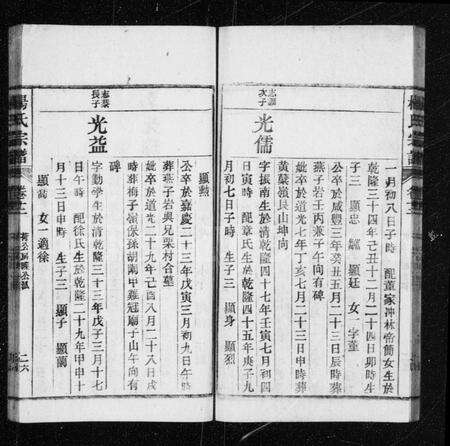 楊氏宗譜
一月初八日子時 配董家沖林啓簡女生於
乾隆三十四年己丑十二月二十四日卯時生
子三 顯忠 顯廷 女一字董
公卒於咸豐三年癸丑五月二十三日辰時葬
燕子岩壬丙兼子午向有碑
妣卒於道光七年丁亥七月二十三日申時葬
黃藥嶺艮山坤向
次子
光儒
字振南生於清乾隆四十七年壬寅七月初四
日子時 配章氏生於乾隆四十五年庚子九
月初七日子時 生子三 顯身 顯烈
顯勲
公卒於嘉慶二十三年戊寅三月初九日午時
葬燕子岩與兄棠村合墓
妣卒於道光二十九年己酉八月二十八日戌
時葬梅子嶺保孫胡南甲雞冠廟子山午向有
碑
長子
光益
字勤學生於清乾隆三十三年戊子三月十七
日午時 配徐氏生於乾隆二十九年甲申十
月十三日申時 生子三 顯子 顯蘭
女一適徐
楊氏宗譜
二六